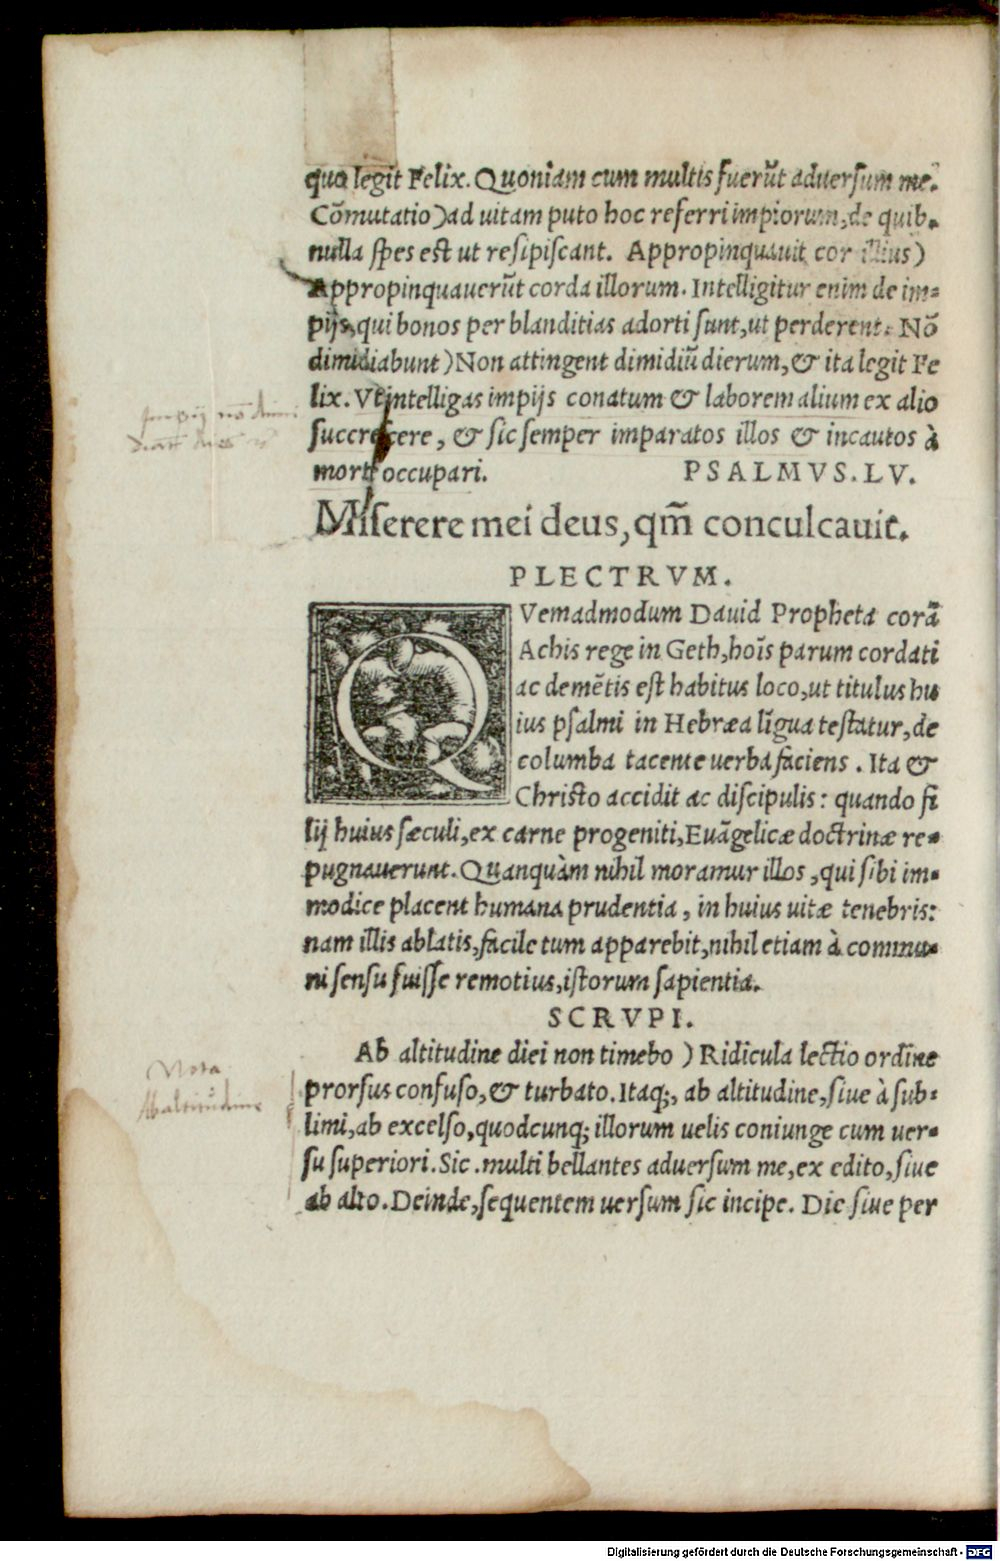 quo legit Felix. Quoniam cum multis fuerũt aduersum me.
Cõmutatio) ad uitam puto hoc referri impiorum, de quib.
nulla spes est ut resipiscant. Appropinquauit cor illius)
Appropinquauerũt corda illorum. Intelligitur enim de im-
pijs, qui bonos per blanditias adorti sunt, ut perderent. Nõ
dimidiabunt) Non attingent dimidiũ dierum, & ita legit Fe
lix. Vt intelligas impijs conatum & laborem alium ex alio
succrescere, & sic semper imparatos illos & incautos à
morte occupari. PSALMVS. LV.
Miserere mei deus, qm̃ conculcauit.
PLECTRVM.
QVemadmodum Dauid Propheta corã
Achis rege in Geth, hoĩs parum cordati
ac demẽtis est habitus loco, ut titulus hu
ius psalmi in Hebræa lĩgua testatur, de
columba tacente uerba faciens. Ita &
Christo accidit ac discipulis: quando fi
lij huius sæculi, ex carne progeniti, Euãgelicæ doctrinæ re-
pugnauerunt. Quanquàm nihil moramur illos, qui sibi im-
modice placent humana prudentia, in huius uitæ tenebris:
nam illis ablatis, facile tum apparebit, nihil etiam à commu-
ni sensu fuisse remotius, istorum sapientia.
SCRVPI.
Nota
Ab altitudine
Ab altitudine diei non timebo) Ridicula lectio ordine
prorsus confuso, & turbato. Itaq;, ab altitudine, siue à sub-
limi, ab excelso, quodcunq; illorum uelis coniunge cum uer-
su superiori. Sic. multi bellantes aduersum me, ex edito, siue
ab alto. Deinde, sequentem uersum sic incipe. Die siue per
Digitalisierung gefördert durch die Deutsche Forschungsgemeinschaft - DFG